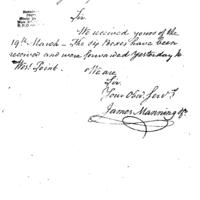 Sir
We received yours of the
19th March – The 54 Boxes have been
received and were forwarded yesterday to
West Point.
We are
Sir
Your Obt Servts
James Manning &Co